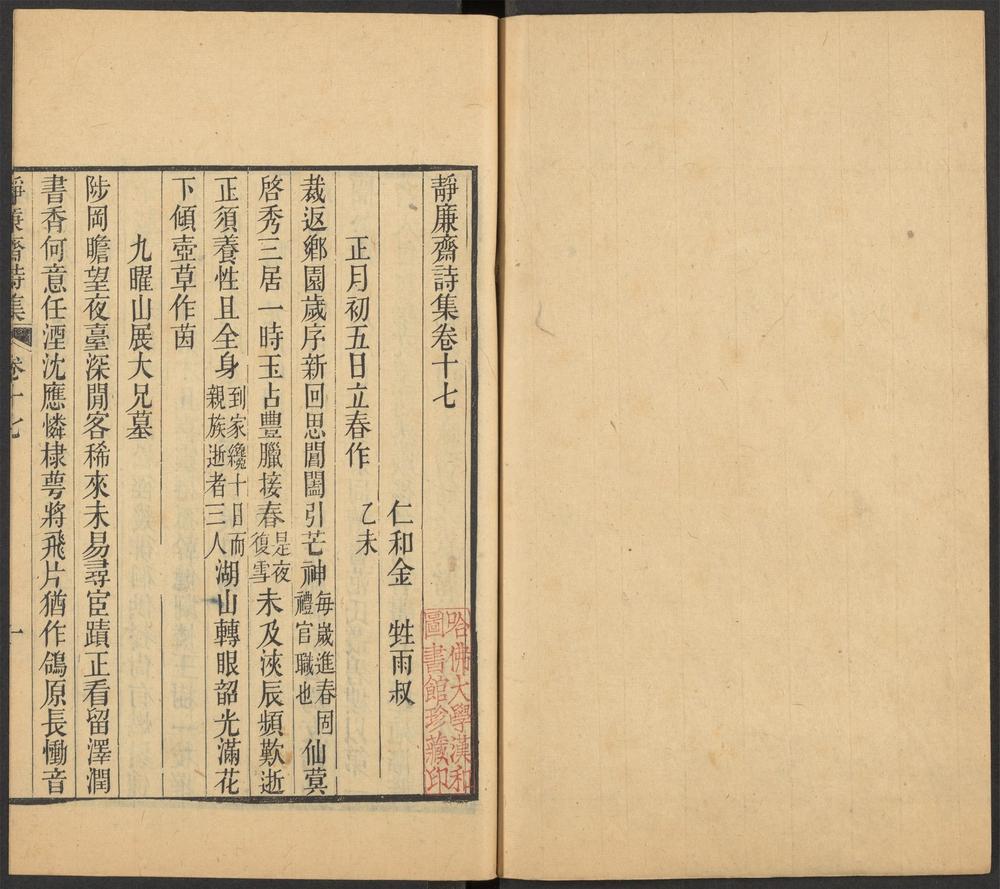 靜廉齋詩集卷十七
仁和金 甡雨叔
正月初五日立春作 乙未
裁返鄉園歲序新回思閶闔引芒神每歲進春固禮官職也仙蓂
啓秀三居一時玉占豐臘接春是夜復雪未及浹辰頻歎逝
正須養性且全身到家纔十日而親族逝者三人湖山轉眼韶光滿花
下傾壺草作茵
九曜山展大兄墓
陟岡瞻望夜臺深閒客稀來未易尋宦蹟正看留澤潤
書香何意任湮沈應憐棣萼將飛片猶作鴒原長慟音
靜廉齋詩集 卷十七 一
哈佛大學漢和
圖書館珍藏印